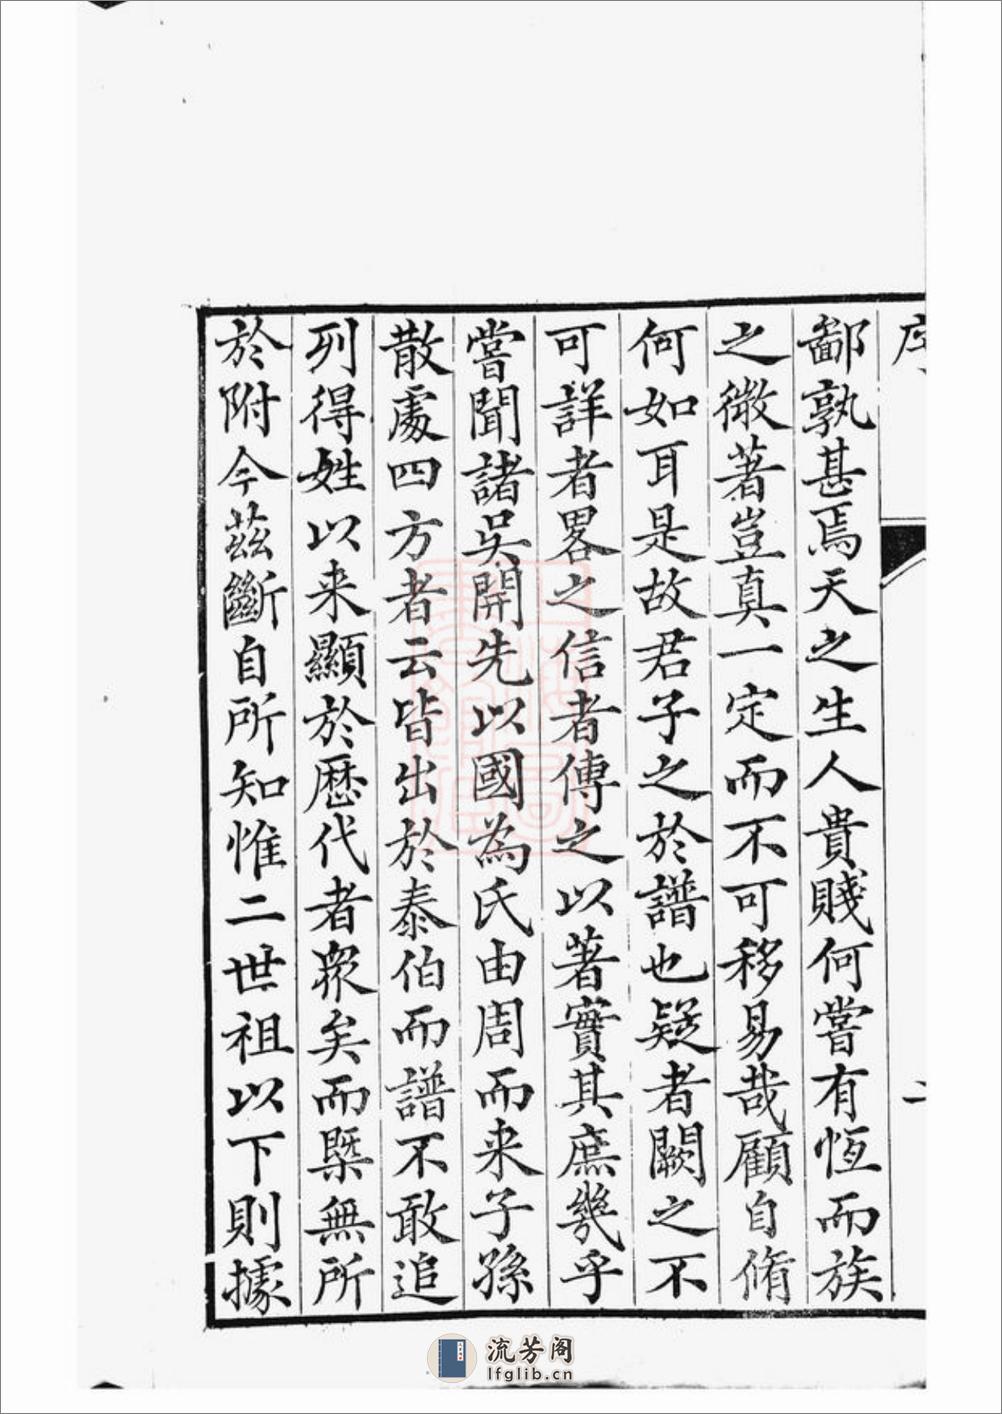 序
二
鄙孰甚焉天之生人貴賤何嘗有恆而族
之微著豈真一定而不可移易哉顧自脩
何如耳是故君子之於譜也疑者闕之不
可詳者畧之信者傳之以著實其庶幾乎
嘗聞諸吳開先以國為氏由周而来子孫
散處四方者云皆出於泰伯而譜不敢追
列得姓以来顯於歷代者衆矣而槩無所
於附今茲斷自所知惟二世祖以下則據
流芳阁
lfglib.cn